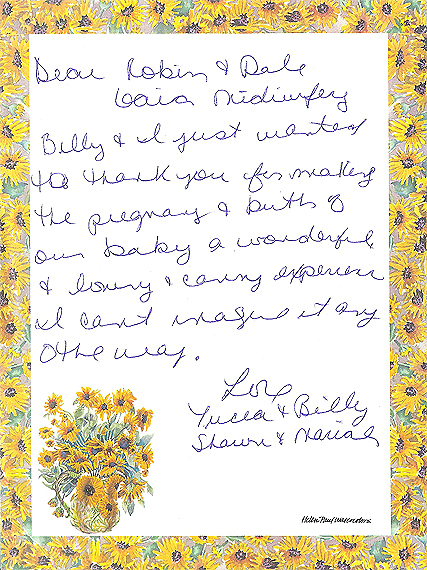 Dear Robin & Dale
Gaia Midwifery
Billy & I just wanted
to thank you for making
the pregnancy & birth of
our baby a wonderful,
& loving & caring experience
I can't imagine it any
other way.
Love
& Billy
Shawn & Mariah